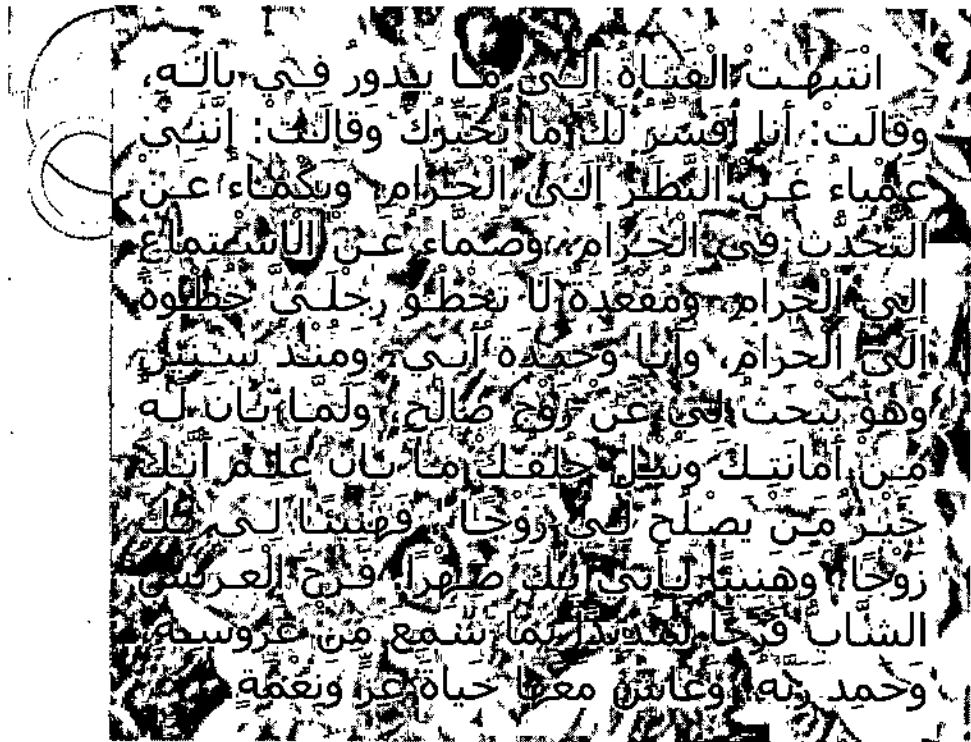 انْتَبَهَتْ الْفَتَاةُ إِلَى مَا يَدُور فِي بَالَه،
وَقالَت: أَنا أُفَسِّر لَكَ مَا يُحَيِّرك وَقالَتْ: إِنَّنِي
عَمْياء عَن النَّظَر إِلَى الْحَرام، وَبَكْمَاء عَنْ
التَّحَدُّث فِي الْحَرام، وَصَمَّاء عَنْ الْاسْتِمَاع
إِلَى الْحَرام، وَمُقْعَدَة لَا تَخْطُو رِجْلَي خُطْوَة
إِلَى الْحَرامْ، وَأَنا وَحيدَة أَبي، وَمُنْذ سِنين
وَهُوَ يَبْحَثُ لِي عَنْ زَوْج صَّالِح، وَلَمّا بَان لَه
مِنْ أَمَانَتِكَ وَنُبْل خُلُقكْ مَا بَان عَلِمَ أَنَّك
خَيْر مَنْ يَصلُح لِي زَوْجًا، فَهَنِيئًا لِي بِكَ
زَوْجًا، وَهَنِيئًا لِأَبي بِكَ صِهْرًا، فَرِح الْعَرِيس
الشَّاب فَرَحًا شَدِيدًا بِمَا سَمِع مِنْ عَرُوسه،
وَحَمِد رَبّه، وَعَاش مَعَهَا حَيَاة عِز وَنِعْمَة.